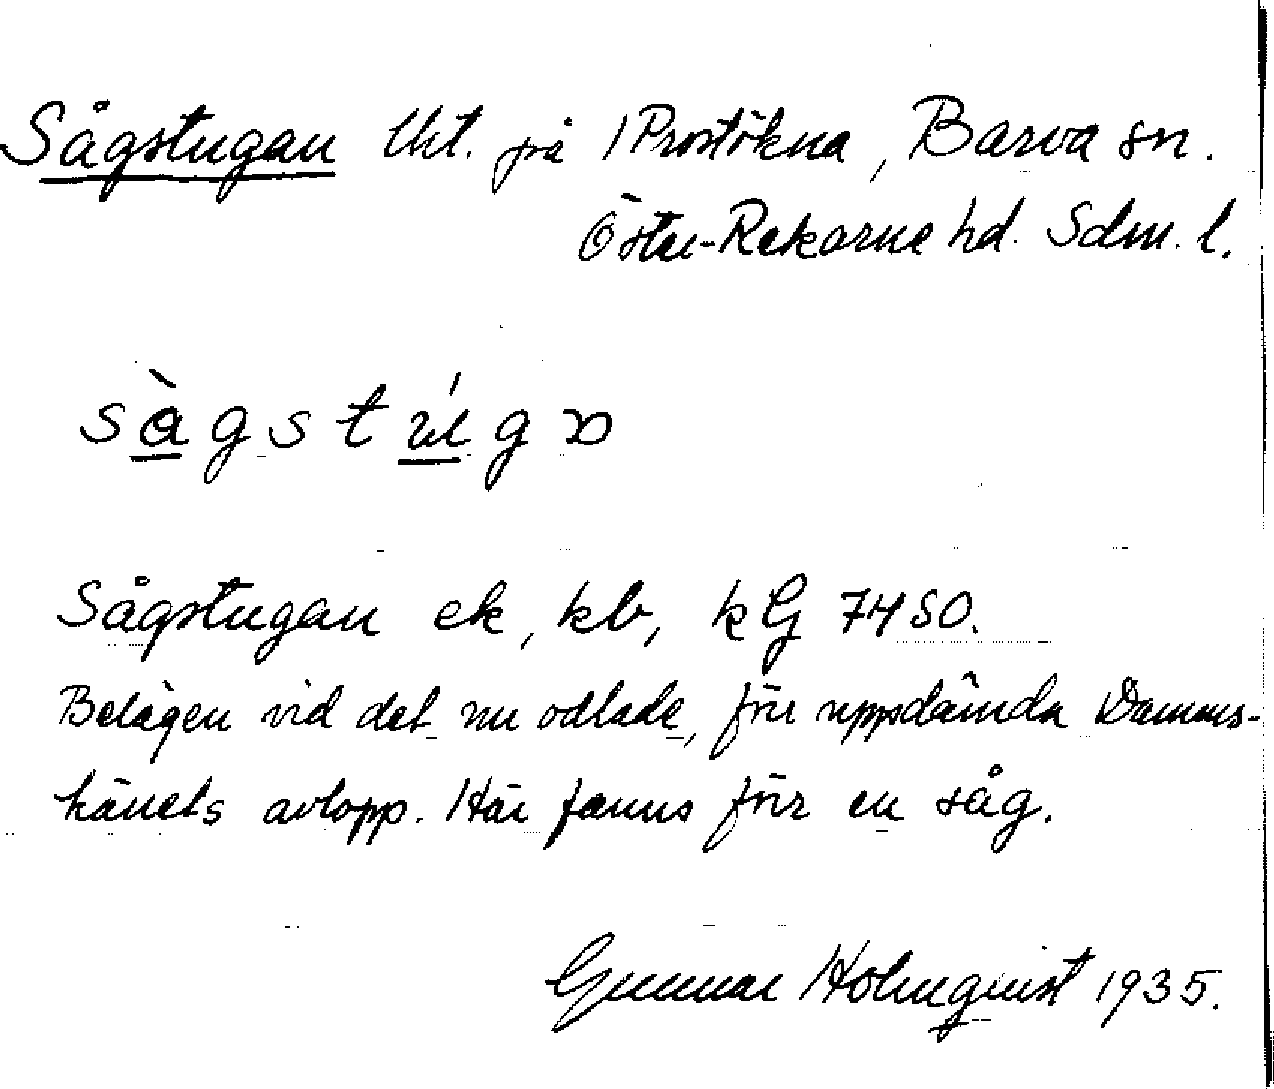 Sågstugan Uht. på Prostökna, Barva sn.
Öster-Rekarne hd. Sdm. l.
Sågstugan ek, kb, kG 7450.
Belägen vid det nu odlade, förr uppdämda Damms-
kärrets avlopp. Här fanns förr en såg.
Gunnar Holmquist 1935.